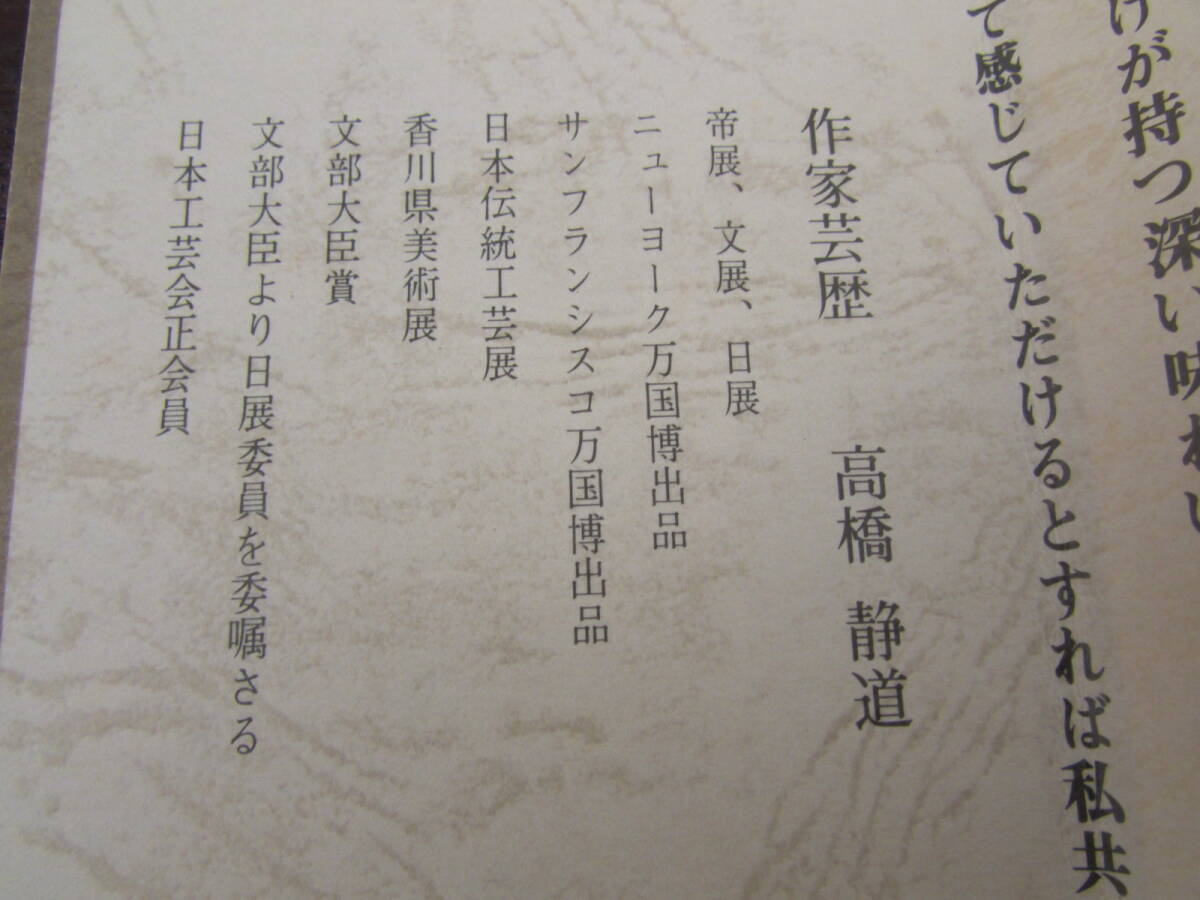 けが持つ深い味わい
て感じていただけるとすれば私共
作家芸歴 高橋 静道
帝展、文展、日展
ニューヨーク万国博出品
サンフランシスコ万国博出品
日本伝統工芸展
香川県美術展
文部大臣賞
文部大臣より日展委員を委嘱さる
日本工芸会正会員